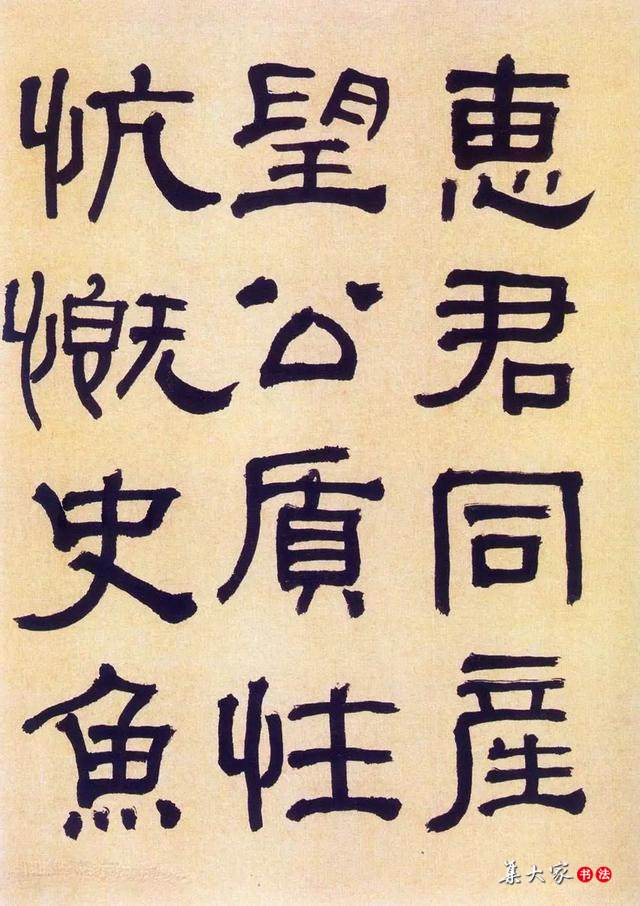 恵君同產
望公質性
忼慨史魚
集大家书法